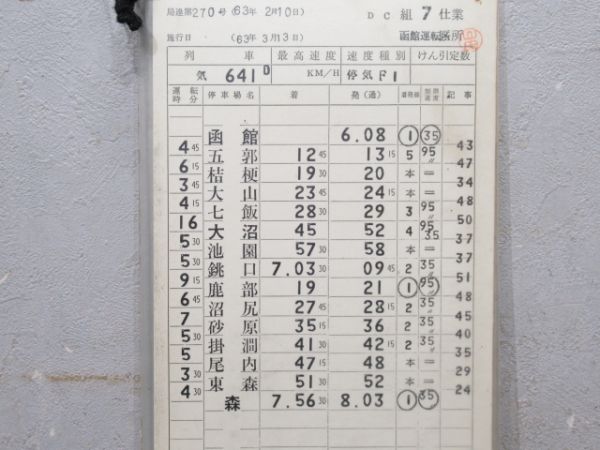 局達第270号(63年 2月10日) D C 組 7 仕業
施行日 (63年 3月13日) 函館運転所
列 車 最高速度 速度種別 けん引定数
気 641D KM/H 停気F1
運転時分 停車場名 着 発(通) 着発線 制限速度 記事
函館 6.08 ① 35
4 45 43
五郭 12 45 13 15 5 95
6 15 47
桔梗 19 30 20 本 =
3 45 34
大山 23 45 24 15 本 =
4 15 48
七飯 28 30 29 3 95
16 50
大沼 45 52 4 95 35
5 30 37
池園 57 30 58 本 =
5 30 37
銚口 7.03 30 09 45 2 35
9 15 51
鹿部 19 21 ① 95
6 45 48
沼尻 27 45 28 15 2 35
7 45
砂原 35 15 36 2 35
5 30 40
掛澗 41 30 42 15 2 35
5 35
尾内 47 15 48 本 =
3 30 29
東森 51 30 52 本 =
4 30 24
森 7.56 30 8.03 ① 35